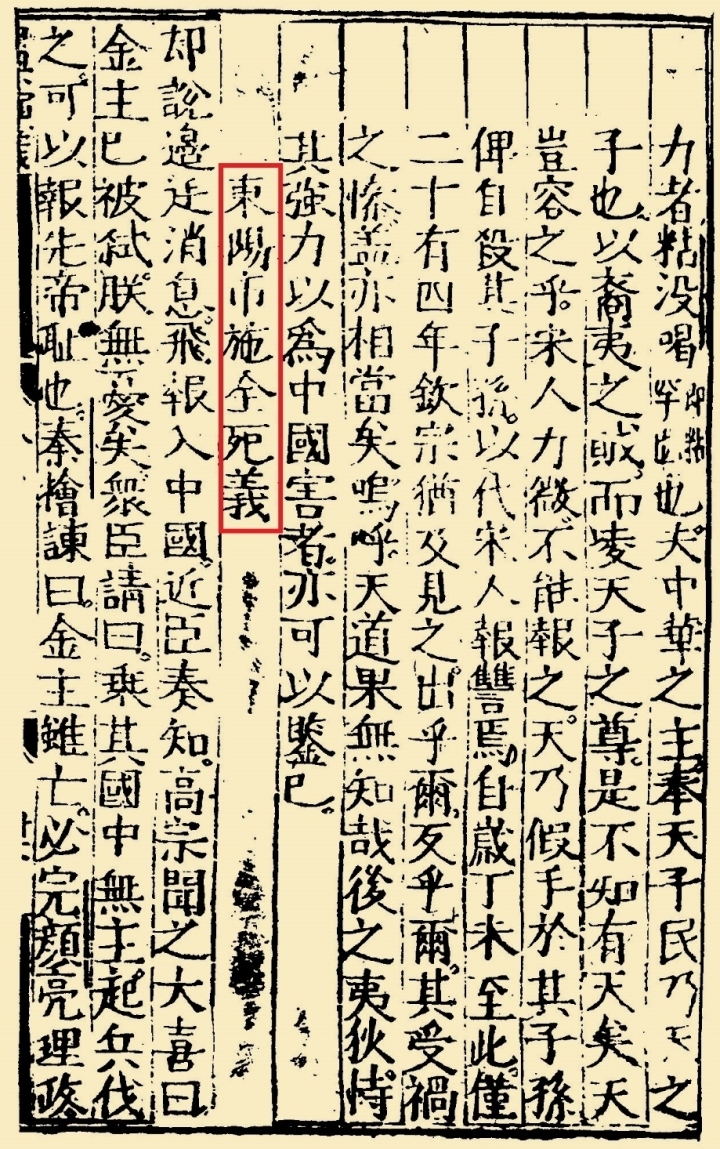 力者粘没喝即粘罕也。夫中華之主奉天子民乃天之
子也。以裔夷之賊。而凌天子之尊。是不知有天矣天
豈容之乎。宋人力微不能報之。天乃假手於其子孫
俾自殺其子孫。以代宋人報讐焉。自歲丁未至此。僅
二十有四年欽宗猶及見之。出乎爾。反乎爾。其受禍
之慘盖亦相當矣嗚呼。天道果無知哉後之夷狄。恃
其強力以爲中國害者。亦可以鑒已。
東陽市施全死義
却說邊廷消息。飛報入中國。近臣奏知。高宗聞之大喜曰
金主已被弑。朕無憂矣衆臣請曰。乘其國中無主。起兵伐
之。可以報先帝耻也。秦檜諫曰。金主雖亡。必完顏亮理政